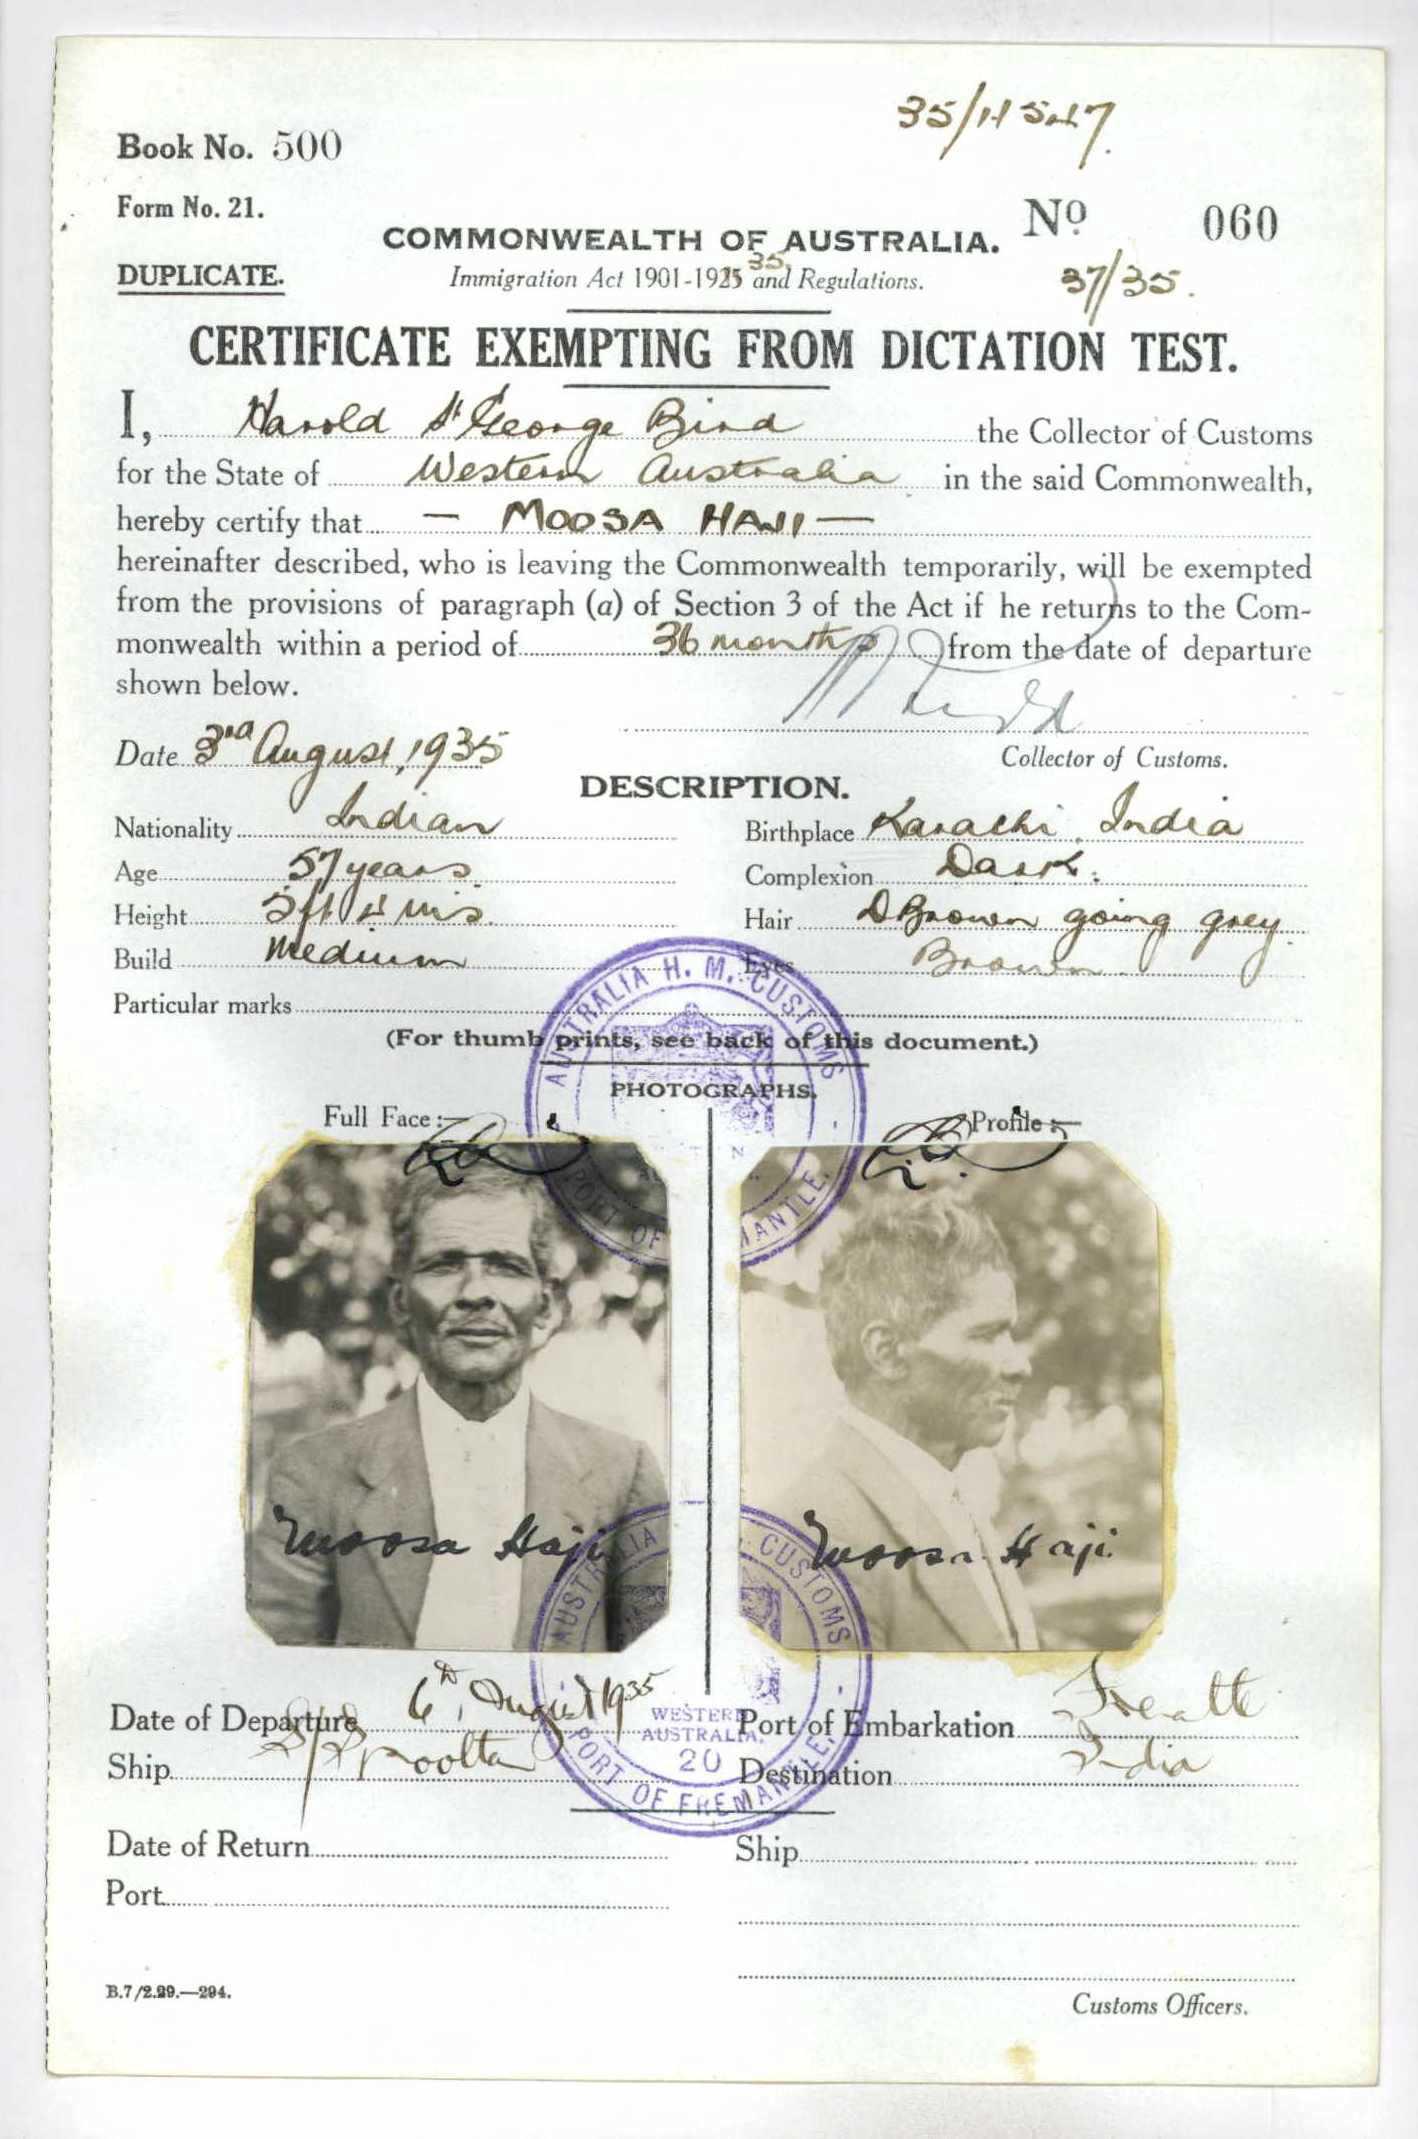 35/11547.
Book No. 500
Form No. 21.
No 060
COMMONWEALTH OF AUSTRALIA.
DUPLICATE.
Immigration Act 1901-1925 35. and Regulations.
37/35.
CERTIFICATE EXEMPTING FROM DICTATION TEST.
I, Harold St George Bird the Collector of Customs
for the State of Western Australia in the said Commonwealth,
hereby certify that — MOOSA HAJI —
hereinafter described, who is leaving the Commonwealth temporarily, will be exempted
from the provisions of paragraph (a) of Section 3 of the Act if he returns to the Com-
monwealth within a period of 36 months from the date of departure
shown below.
Date 3rd August, 1935
Collector of Customs.
DESCRIPTION.
Nationality Indian Birthplace Karachi, India
Age 57 years. Complexion Dark.
Height 5ft 4 ins. Hair D Brown going grey.
Build Medium Eyes Brown.
Particular marks
(For thumb prints, see back of this document.)
PHOTOGRAPHS.
Full Face:— Profile:—
AUSTRALIA H. M. CUSTOMS
PORT OF FREMANTLE.
Moosa Haji Moosa Haji
AUSTRALIA CUSTOMS
WESTERN
AUSTRALIA.
20
PORT OF FREMANTLE.
Date of Departure 6th August 1935 Port of Embarkation F'mantle
Ship S/S Mooltan Destination India
Date of Return Ship
Port
B.7/2.29.—294.
Customs Officers.